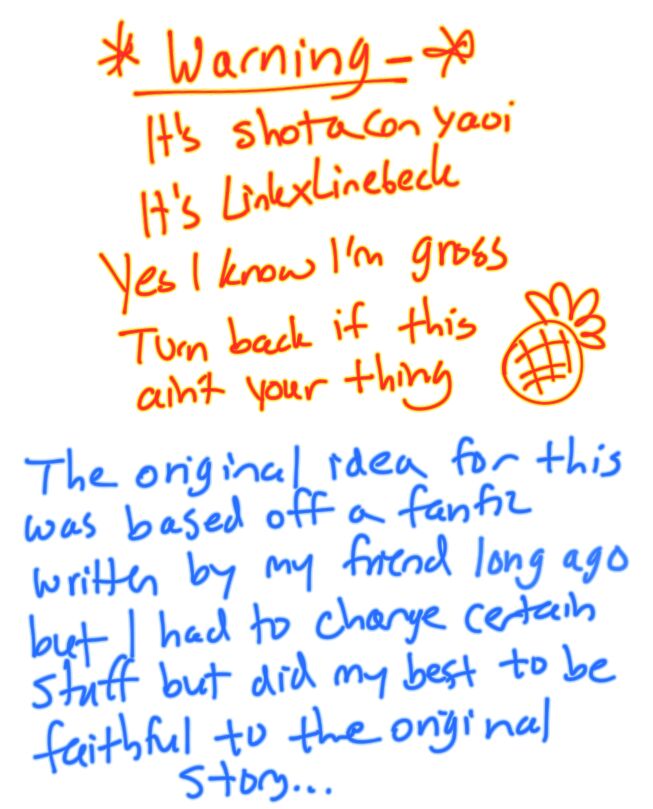 * Warning - *
It's shotacon yaoi
It's LinkxLinebeck
Yes I know I'm gross
Turn back if this
ain't your thing
The original idea for this
was based off a fanfic
written by my friend long ago
but I had to change certain
stuff but did my best to be
faithful to the original
story...